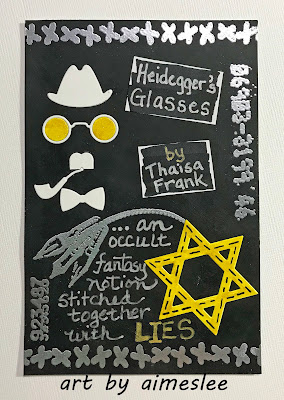 Heidegger's
Glasses
by
Thaisa
Frank
... an
occult
fantasy
notion
stitched
together
with LIES
art by aimeslee